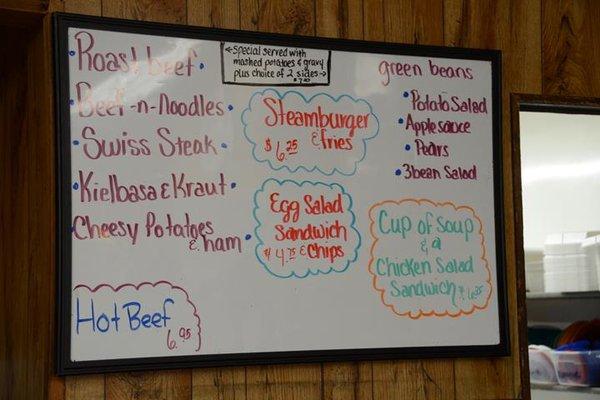 Roast beef
Beef-n-Noodles
Swiss Steak
Kielbasa & Kraut
Cheesy Potatoes
& ham
Hot Beef
6.95
←special served with
mashed potatoes & gravy
plus choice of 2 sides→
Steamburger
$6.25 & fries
Egg Salad
Sandwich
$4.75 & Chips
green beans
Potato Salad
Applesauce
Pears
3bean Salad
Cup of Soup
& a
Chicken Salad
Sandwich $6.25